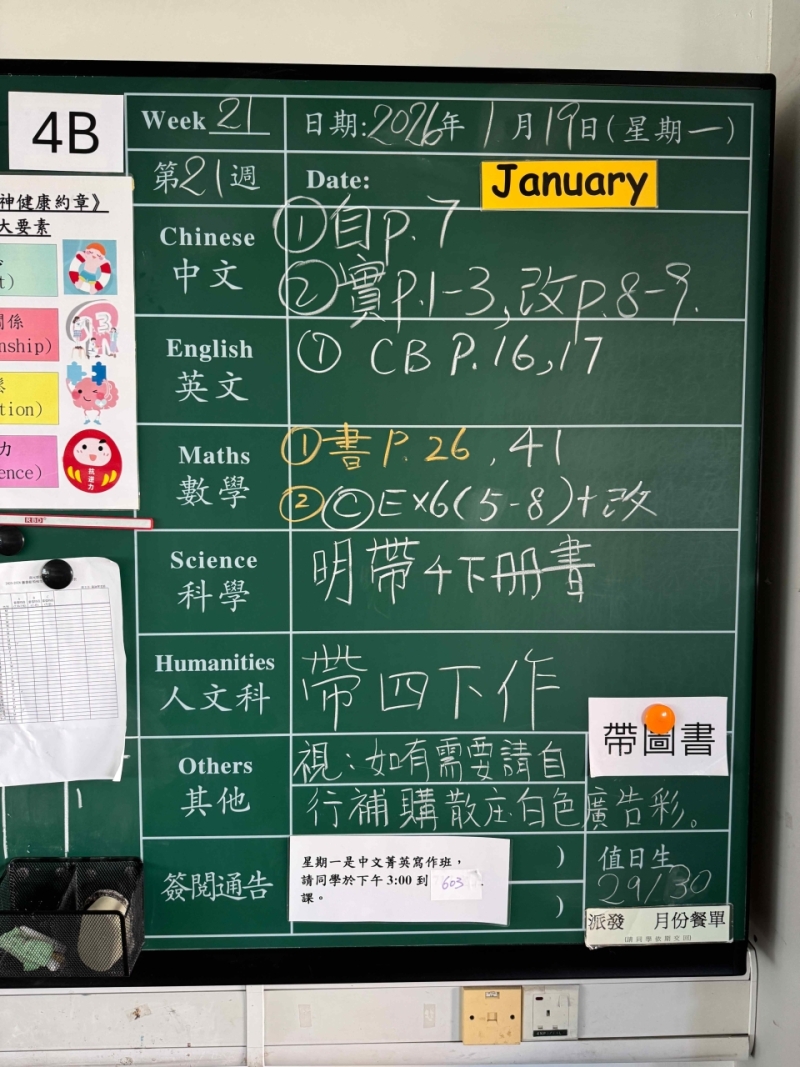 4B
Week 21
日期:2026年1月19日(星期一)
第21週
Date:
January
神健康約章》
大要素
t)
關係
nship)
tion)
力
ence)
抗逆力
Chinese
中文
①自p.7
②實p.1-3,改p.8-9.
English
英文
① CB P.16,17
Maths
數學
①書P.26,41
②ⒸEX6(5-8)+改
RBD
Science
科學
明帶4下冊書
Humanities
人文科
帶四下作
帶圖書
Others
其他
視:如有需要請自
行補購散庄白色廣告彩。
簽閱通告
星期一是中文菁英寫作班,
請同學於下午 3:00 到 603
課。
)
)
值日生
29/30
派發 月份餐單